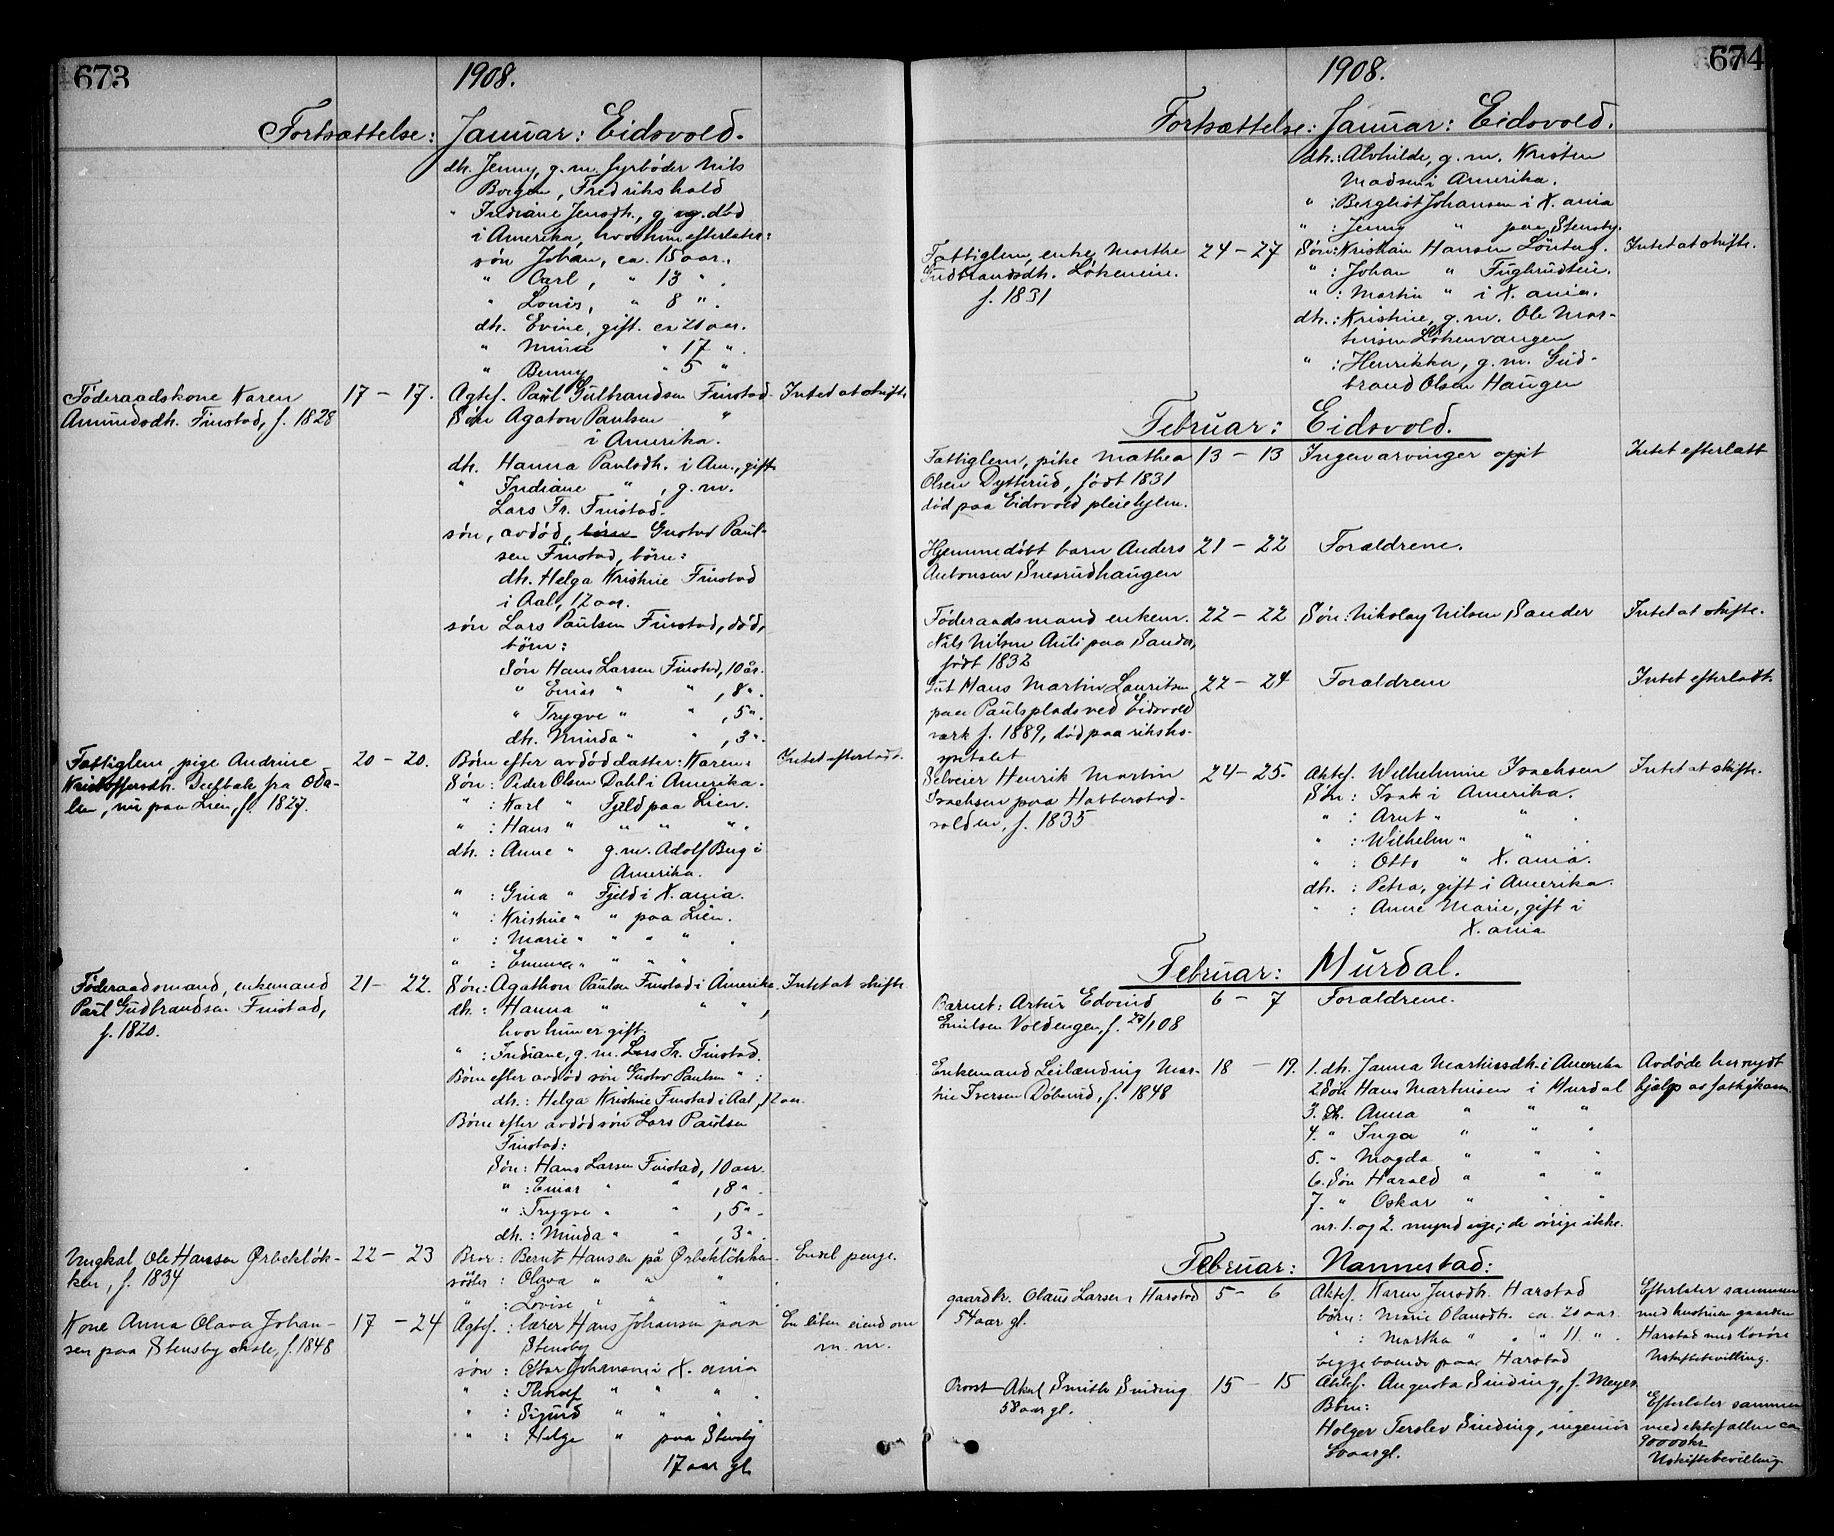 673
1908.
Fortsættelse: Januar: Eidsvold.
dh. Jenny, g. m. fyrbøder Nils
Borgen, Fredrikshald
" Indiane Jensdh., g. og død
i Amerika, hvor hun efterlater:
søn Johan, ca. 15 aar.
" Carl, " 13 " .
" Louis, " 8 " .
dh. Evine, gift. ca 21 aar.
" " 17 " .
" Benny " 5 "
Føderaadskone Karen 17 – 17. Agtef. Paul Gulbrandsen Finstad Intet at skifte
Amundsdh. Finstad, f. 1828 Søn Agaton Paulsen "
i Amerika.
dh. Hanna Paulsdh. i Am., gift
" Indiane " , g. m.
Lars Fr. Finstad.
søn, avdød, børn Gustav Paul-
sen Finstad, børn:
dh. Helga Kristine Finstad
i Aal, 12 aar.
søn Lars Paulsen Finstad, død,
børn:
Søn Hans Larsen Finstad, 10 år.
" Einar " " , 8 " .
" Trygve " " , 5 " .
dh. Minda " " , 3 " .
Fattiglem, pige Andrine 20 – 20. Børn efter avdød datter: Karen: Intet efterladt.
Kristoffersdh. fra Oda- Søn: Peder Olsen Dahl i Amerika.
len, nu paa Lien, f. 1827. " : Karl " Fjeld paa Lien.
" : Hans " " " " .
dh. : Anne " g. m. Adolf Berg i
Amerika.
" : Gina " Fjeld i X.ania.
" : Kristine " " paa Lien.
" : Marie " " " " .
" : Emma " " " " .
Føderaadsmand, enkemand 21 – 22. Søn: Agathon Paulsen Finstad i Amerika. Intet at skifte
Paul Gudbrandsen Finstad, dh. : Hanna " " " ,
f. 1820. hvor hun er gift.
" : Indiane, g. m. Lars Fr. Finstad.
Børn efter avdød søn Gustav Paulsen " :
dh. : Helga Kristine Finstad i Aal, 12 aar.
Børn efter avdød søn Lars Paulsen
Finstad:
Søn: Hans Larsen Finstad, 10 aar.
" : Einar " " , 8 " .
" : Trygve " " , 5 " .
dh. : Minda " " , 3 " .
Ungkal Ole Hansen Ørbekløk- 22 – 23 Bror : Bernt Hansen på Ørbekløkka. Endel penge.
ken, f. 1834 søster : Olava " " " .
" : Lovise " " " .
Kone Anna Olava Johan- 17 – 24 Agtef. : lærer Hans Johansen paa En liten eiendom
sen paa Stensby skole, f. 1848 Stensby m. m.
søn : Johansen i X.ania
" : Thoralf " " " .
" : Sigurd " " " .
" : Helge " paa Stensby
17 aar gl.
674
1908.
Fortsættelse: Januar: Eidsvold.
dh. : Alvhilde, g. m. Kristen
Madsen i Amerika.
" : Bergliot Johansen i X.ania
" : Jenny " paa Stensby.
Fattiglem, enke Marthe 24 – 27 Søn: Kristian Hansen Intet at skifte.
Gudbrandsdh. f. 1831 " : Johan "
" : Martin " i X.ania.
dh. : Kristine, g. m. Ole Mar-
tinsen Løkenvangen
" : Henrikka, g. m. Gud-
brand Olsen Haugen
Februar: Eidsvold.
Fattiglem, pike Mathea 13 – 13 Ingen arvinger opgit Intet efterlatt
Olsen Dytterud, født 1831
død paa Eidsvold pleiehjem.
Hjemmedøbt barn Anders 21 – 22 Forældrene.
Antonsen Snesrudhaugen
Føderaadsmand enkem. 22 – 22 Søn: Nikolay Nilsen Sander Intet at skifte.
Nils Nilsen Anti paa Sander,
født 1832
Gut Hans Martin Lauritsen 22 – 24 Forældrene Intet efterladt.
paa Paulsplads ved Eidsvold
værk f. 1889, død paa riksho-
spitalet
Selveier Henrik Martin 24 – 25. Aktef. Wilhelmine Isachsen Intet at skifte.
Isachsen paa Habberstad- Søn : Isak i Amerika.
volden, f. 1835 " : Arnt " " .
" : Wilhelm " " .
" : Otto " X.ania.
dh. : Petra, gift i Amerika.
" : Anne Marie, gift i
X.ania
Februar: Hurdal.
Barnet: Artur Edvind 6 – 7 Forældrene.
Emilsen Voldengen, f. 27/1 08
Enkemand Leilænding Mar- 18 – 19. 1. dh. Janna Martinsdh. i Amerika Avdøde har nydt
tin Iversen f. 1848 2. Søn Hans Martinsen i Hurdal hjelp av fattigkassen.
3. Dh. Anna " " "
4. " Inga " " "
5. " Magda " " "
6. Søn Harald " " "
7. " Oskar " " "
nr. 1. og 2. myndige; de øvrige ikke.
Februar: Nannestad:
gaardbr. Olaus Larsen Harstad 5 – 6 Aktef. Karen Jensdh. Harstad Efterlater sammen
54 aar gl. børn : Marie Olausdh. ca. 20 aar. med hustruen gaarden
" : Martha " " " 11 " . Harstad med løsøre
begge boende paa Harstad Uskiftebevilling.
Provst Aksel Smith Sinding 15 – 15 Aktef. Augusta Sinding, f. Meyer
58 aar gl. Børn: Efterlater sammen
Holger Terslev Sinding, ingeniør med ektefællen ca
aar gl. 90000 kr.
Uskiftebevilling